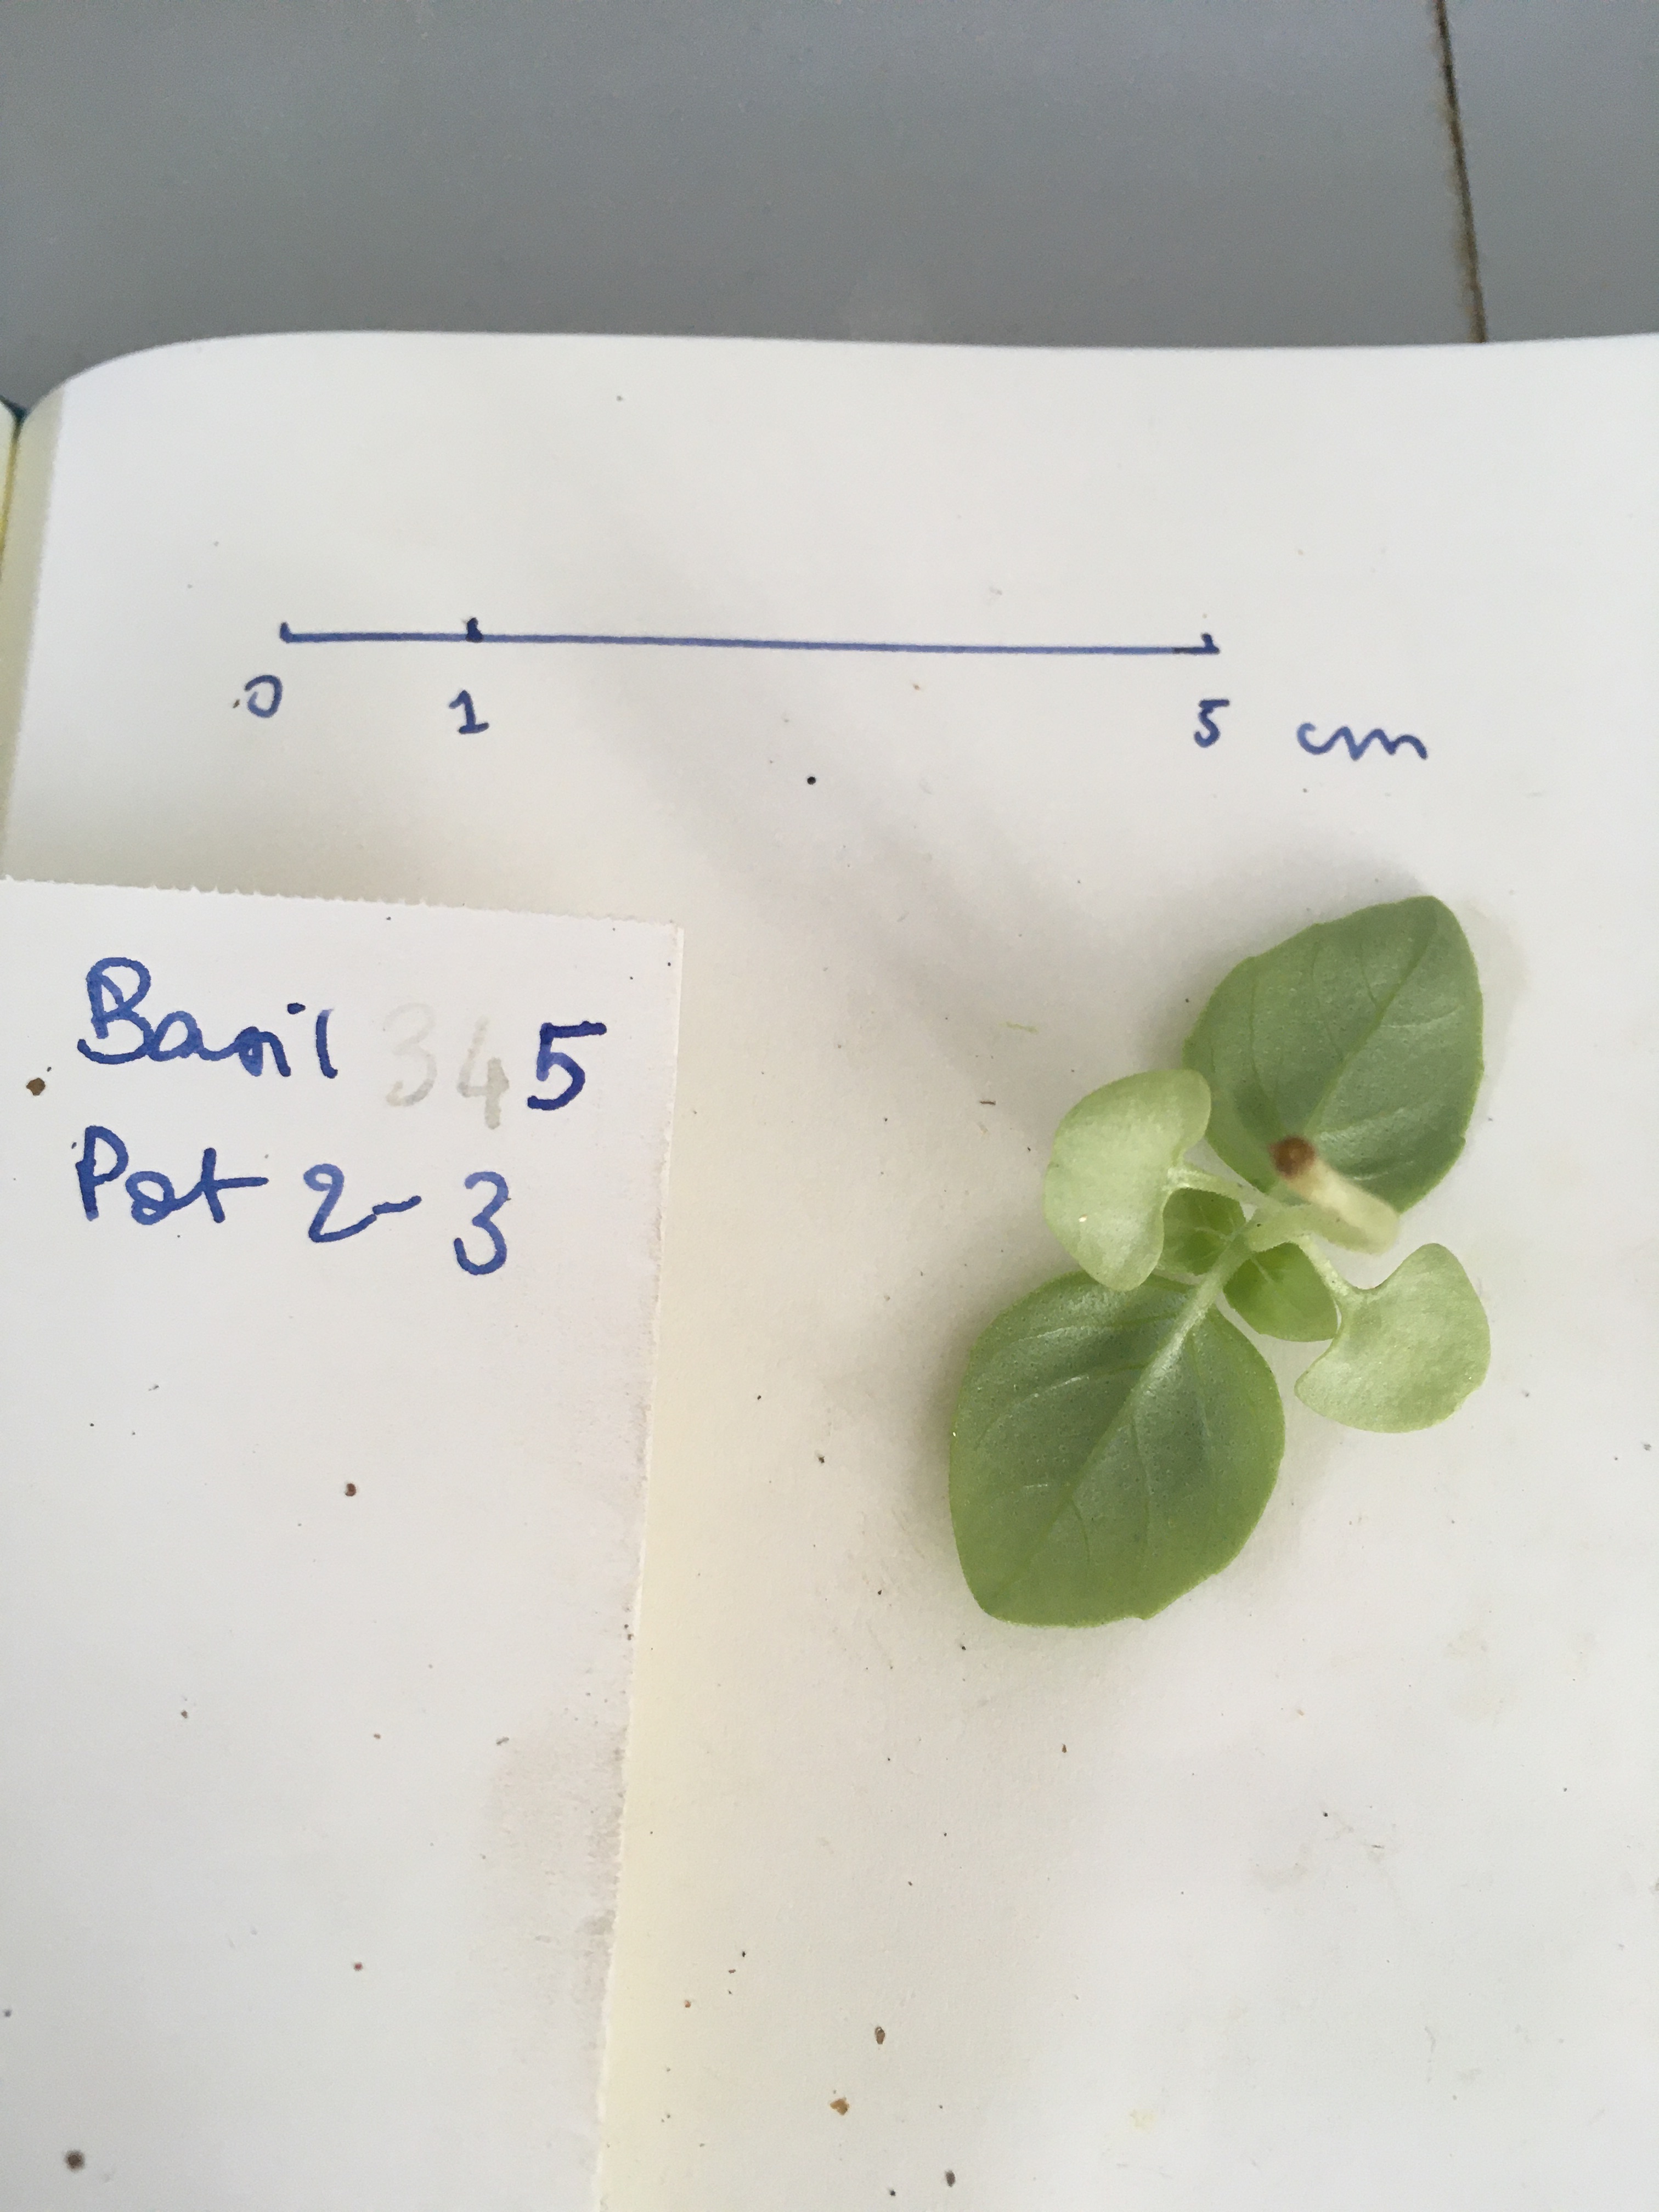 0 1 5 cm
Basil 345
Pot 2-3